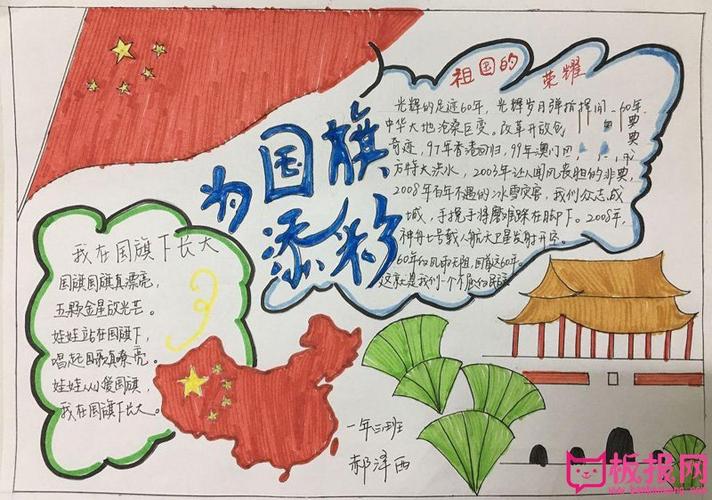 为国旗
添彩
祖国的 荣耀
光辉的足迹60年，光辉岁月弹指挥间，60年
中华大地沧桑巨变。改革开放创
奇迹，97年香港回归，99年澳门
方特大洪水，2003年让人闻风丧胆的非典，
2008年百年不遇的冰雪灾害，我们众志成
城，手挽手将磨难踩在脚下。2008年，
神舟七号载人航天卫星发射升空。
60年的风雨无阻，回首这60年。
这就是我们一个不屈的民族
我在国旗下长大
国旗国旗真漂亮，
五颗金星放光芒。
娃娃站在国旗下，
唱起国歌真嘹亮。
娃娃从小爱国旗，
我在国旗下长大。
一年三班
郝泽西
板报网